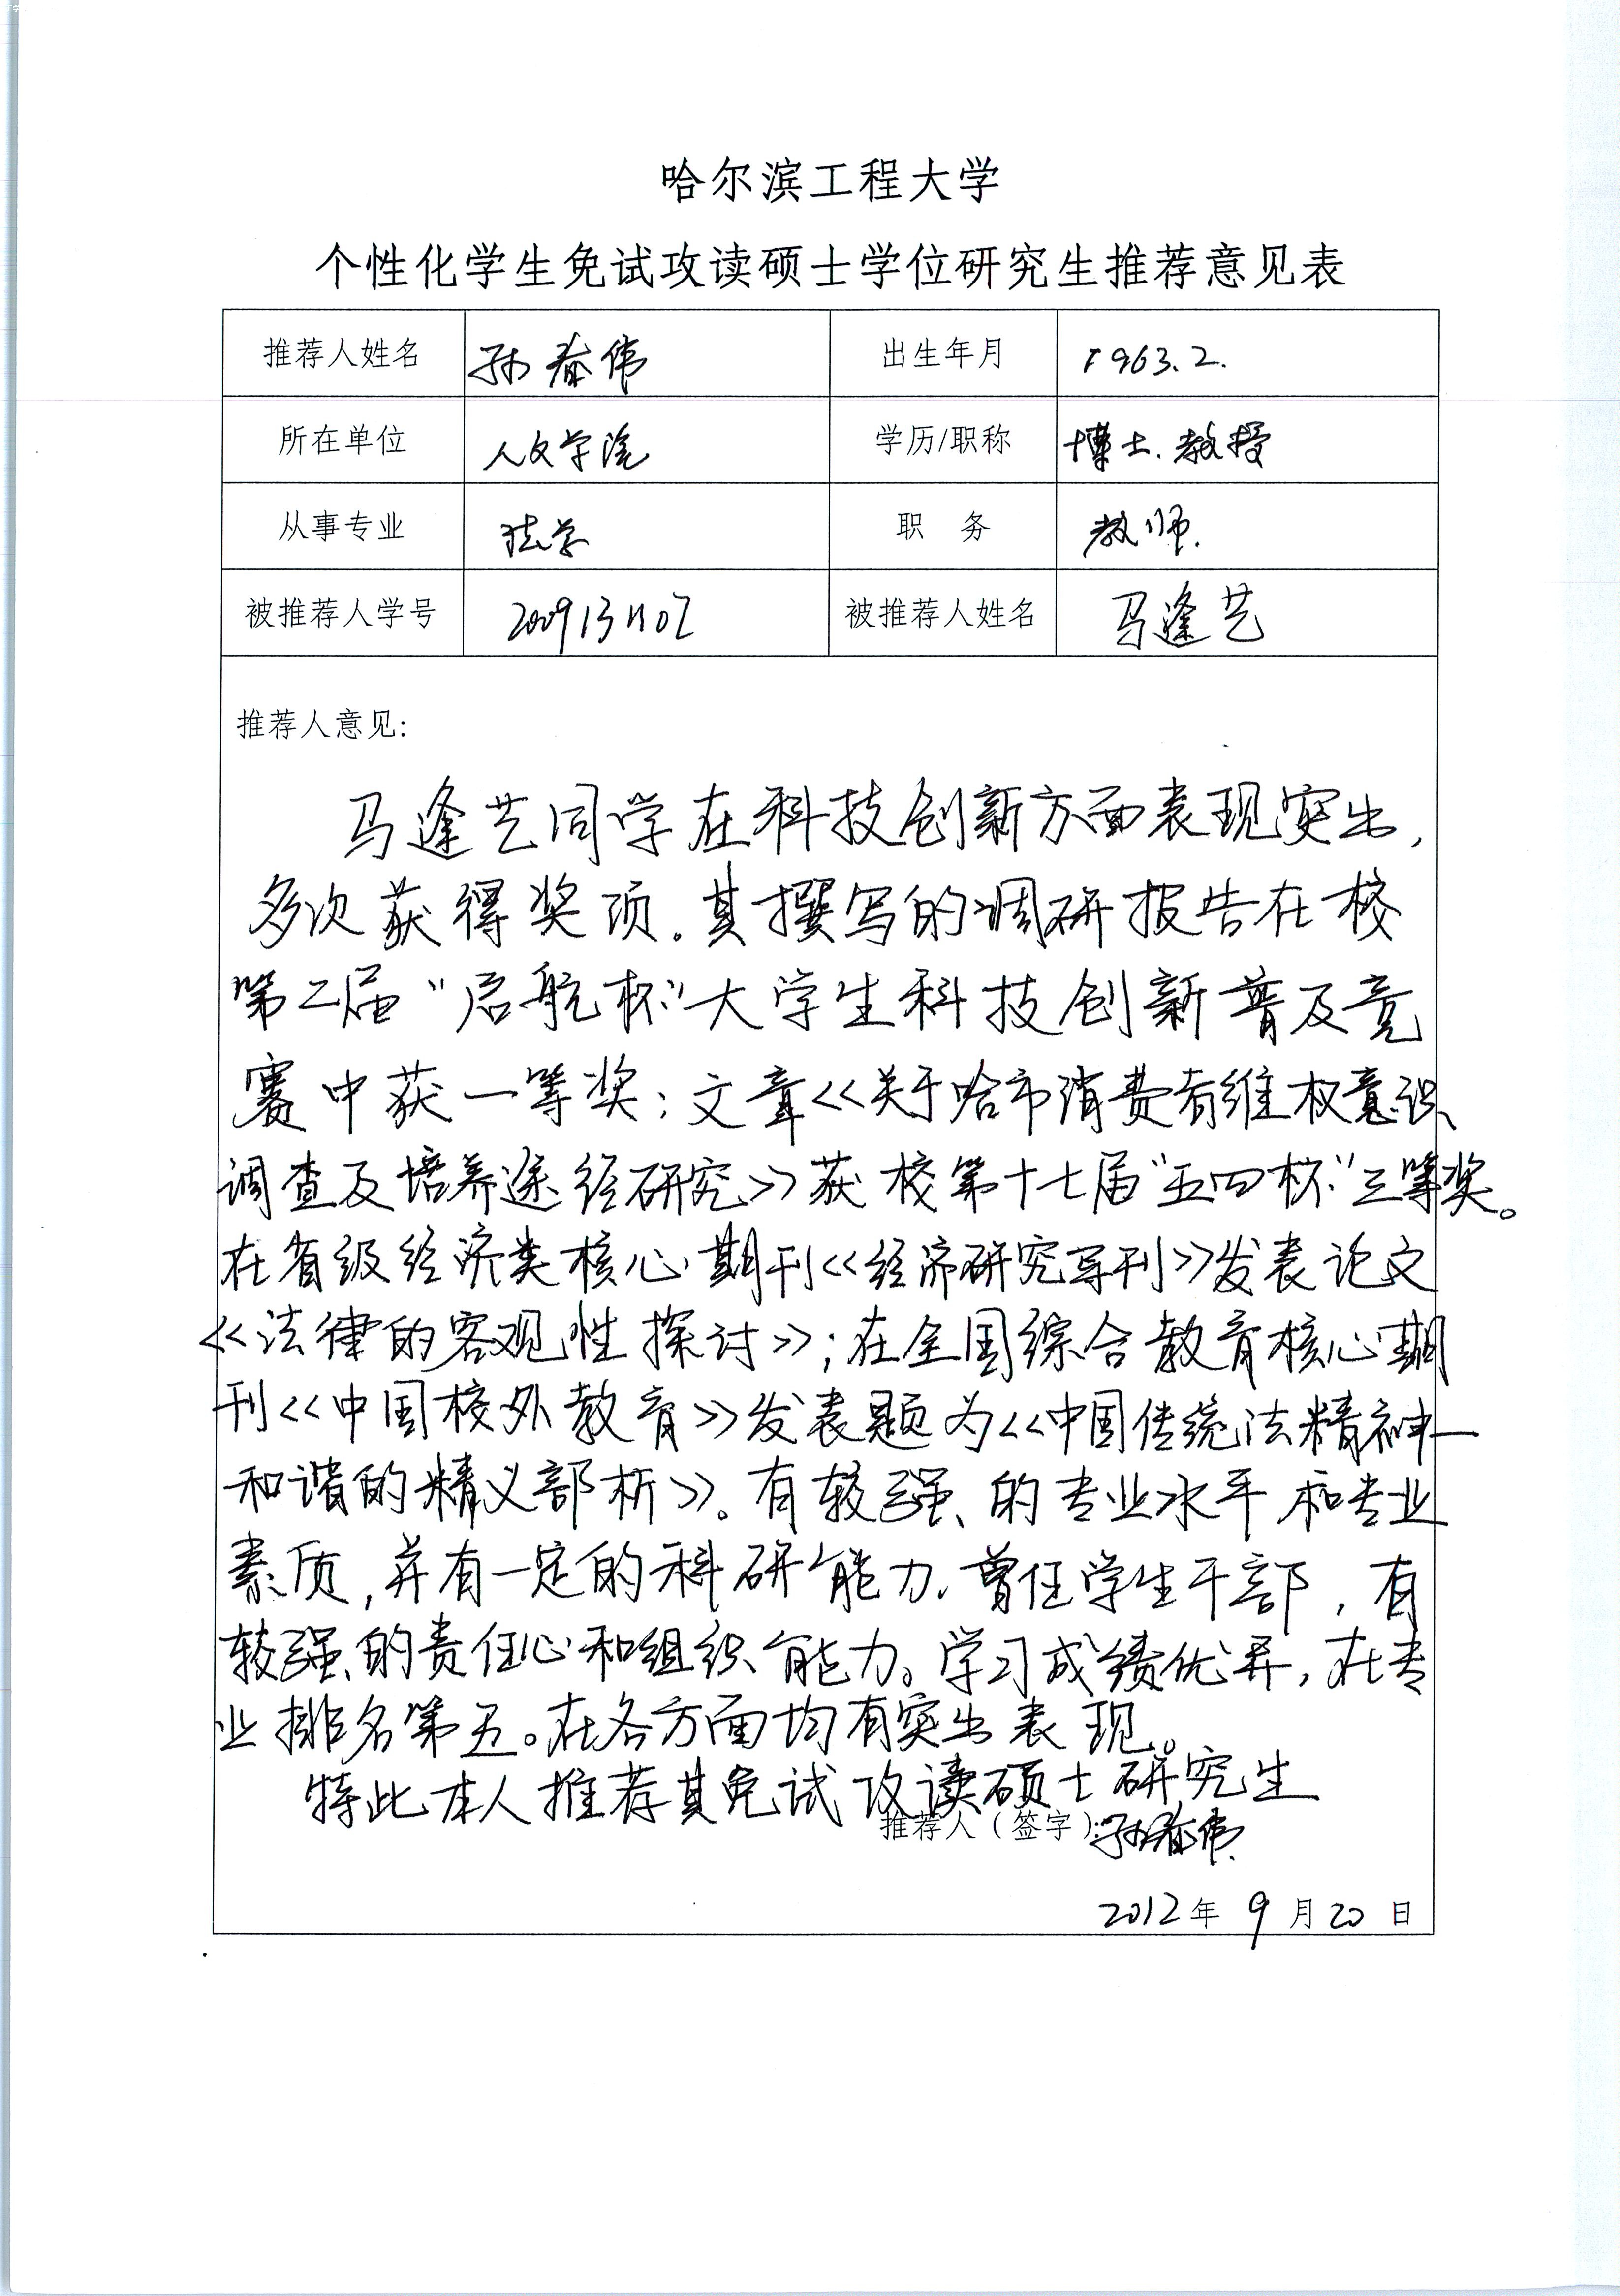 哈尔滨工程大学
个性化学生免试攻读硕士学位研究生推荐意见表
推荐人姓名 孙春伟 出生年月 1963.2.
所在单位 人文学院 学历/职称 博士.教授
从事专业 法学 职 务 教师.
被推荐人学号 2009131107 被推荐人姓名 马逢艺
推荐人意见:
马逢艺同学在科技创新方面表现突出,
多次获得奖项.其撰写的调研报告在校
第二届“启航杯”大学生科技创新普及竞
赛中获一等奖;文章<<关于哈市消费者维权意识
调查及培养途径研究>>获校第十七届“五四杯”三等奖。
在省级经济类核心期刊<<经济研究导刊>>发表论文
<<法律的客观性探讨>>;在全国综合教育核心期
刊<<中国校外教育>>发表题为<<中国传统法精神—
和谐的精义部析>>。有较强的专业水平和专业
素质,并有一定的科研能力.曾任学生干部,有
较强的责任心和组织能力。学习成绩优异,在专
业排名第五。在各方面均有突出表现。
特此本人推荐其免试攻读硕士研究生
推荐人(签字):孙春伟
2012年 9 月 20 日